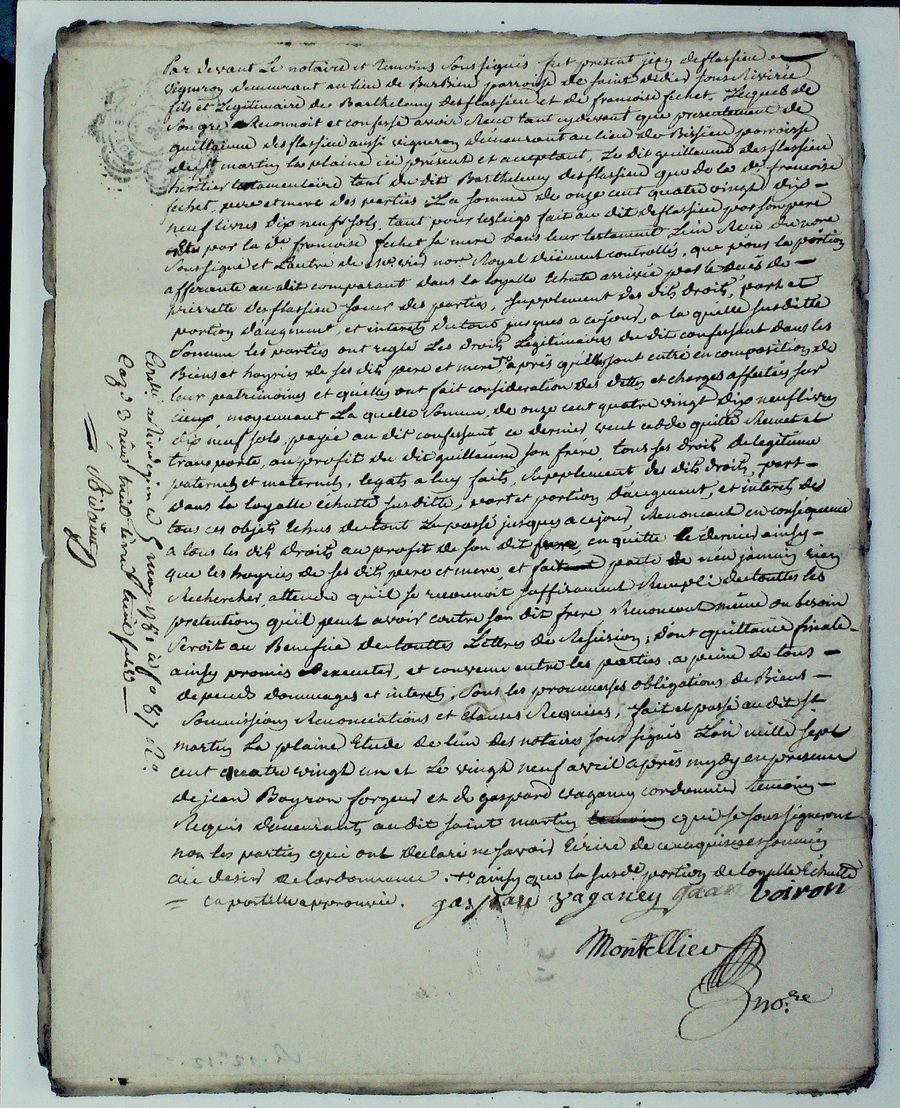 Par devant Le notaire et temoins Soussignés fut present jean desflassieu
vigneron demeurant au lieu de Burbieu parroisse de saint didier sous Rivirie
fils et Legitimaire de Barthelemy desflassieu et de francoise fichet. Lequel de
Son gré Reconnoit et confesse avoir Receu tant cydevant que presentement de
guillaume desflassieu aussi vigneron demeurant au lieu de Bissieu parroisse
de St martin la plaine ici present et acceptant, Le dit guillaume desflassieu
heritier testamentaire tant du dit Barthelemy desflassieu que de la de. francoise
fichet, pere et mere des parties La somme de onze cent quatre vingt dix –
neuf livres dix neuf sols, tant pour les legs fait au dit desflassieu par son pere
par la de. francoise fichet sa mere dans leur testament L'un Receu du nore
Soussigné et L'autre de nore. Royal düement controllés, que pour la portion
afferante au dit comparant dans la loyalle Echute arrivée par le decès de –
pierrette desflassieu soeur des parties, supplement des dits droits, part et
portion d'augment, et interets du tout jusques a ce jour, a la quelle susditte
Somme les parties ont reglé Les droits Legitimaires du dit confessant dans les
Biens et hoyries de ses dits pere et mere, après qu'ils sont entré en composition de
leur patrimoines et qu'elles ont fait consideration des dettes et charges affectées sur
iceux, moyennant La quelle Somme, de onze cent quatre vingt dix neuf livres
dix neuf sols, payée au dit confessant ce dernier, veut cedde quitte Remet et
transporte, au profit du dit guillaume son frere, tous ses droits de legitime
paternels et maternels, legats a luy faits, Supplement des dits droits, part –
dans la loyalle echutte susditte, part et portion d'augment, et interets de
tous ces objets Echus de tout Le passé jusques a ce jour, Renoncant en conséquence
a tous les dits droits au profit de son dit frere, en quitte le dernier ainsy –
que les hoyries de ses dits pere et mere, et fait pacte de n'en jamais rien
Rechercher, attendu qu'il se reconnoit suffisament Rempli de touttes les
pretentions qu'il peut avoir contre son dit frere Renoncant même au besoin
Seroit au Benefice de touttes Lettres de Resision, dont quittance finale –
ainsy promis d'executer, et convenu entre les parties, a peine de tous –
depends dommages et interets, Sous les prommesses obligations de Biens –
Sommissions Renonciations et clauses Requises, fait et passé au dit St
martin La plaine Etude de l'un des notaires soussignés L'an mille sept
cent quatre vingt un et Le vingt neuf avril après mydy en presence
de jean Boyron forgeur et de gaspard vaganey cordonnier temoins –
Requis demeurants au dit saint martin qui se soussigneront
non les parties qui ont declaré ne savoir Ecrire de ce enquises et sommées
au desir de l'ordonnance. ainsy que la susde. portion de loyalle Echutte
= apostille approuvée. gaspard vaganey Boiron
Montellier
nore
Controllé a Rivedegier ce 5 may 1781 fo 87 Ro.